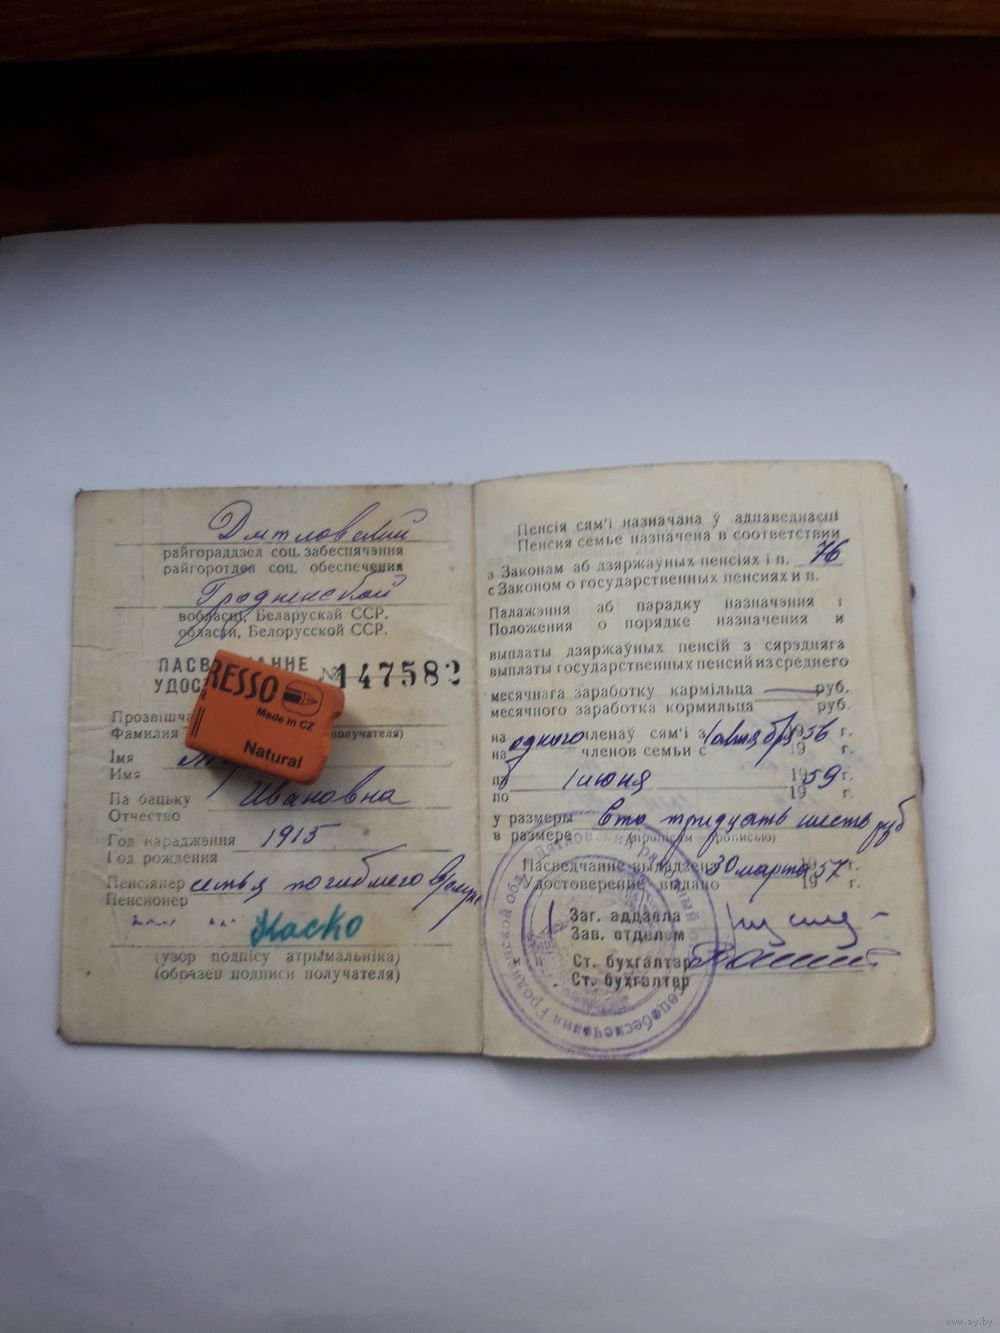 Дятловский
райгораддзел соц. забеспячэння
райгоротдел соц. обеспечения
Гродненской
вобласці, Беларускай ССР.
области, Белорусской ССР.
ПАСВ АННЕ
УДОС № 147582
RESSO
Made in CZ
Natural
Прозвішча
Фамилия получателя)
Імя
Имя
Па бацьку Ивановна
Отчество
Год нараджэння 1915
Год рождения
Пенсіянер семья погибшего
Пенсионер
Каско
(узор подпісу атрымальніка)
(образец подписи получателя)
Пенсія сям'і назначана ў адпаведнасці
Пенсия семье назначена в соответствии
з Законам аб дзяржаўных пенсіях і п. 76
с Законом о государственных пенсиях и п.
Палажэння аб парадку назначэння і
Положения о порядке назначения и
выплаты дзяржаўных пенсій з сярэдняга
выплаты государственных пенсий из среднего
месячнага заработку кармільца руб.
месячного заработка кормильца руб.
на одного членаў сям'і з 1 октября 1956 г.
на членов семьи с 19 г.
па 1 июня 1959 г.
по 19 г.
у размеры сто тридцать шесть руб
в размере (пропісам — прописью)
Пасведчанне выдадзена 30 марта 1957 г.
Удостоверение выдано 19 г.
Заг. аддзела
Зав. отделом
Ст. бухгалтар
Ст. бухгалтер
www.ay.by